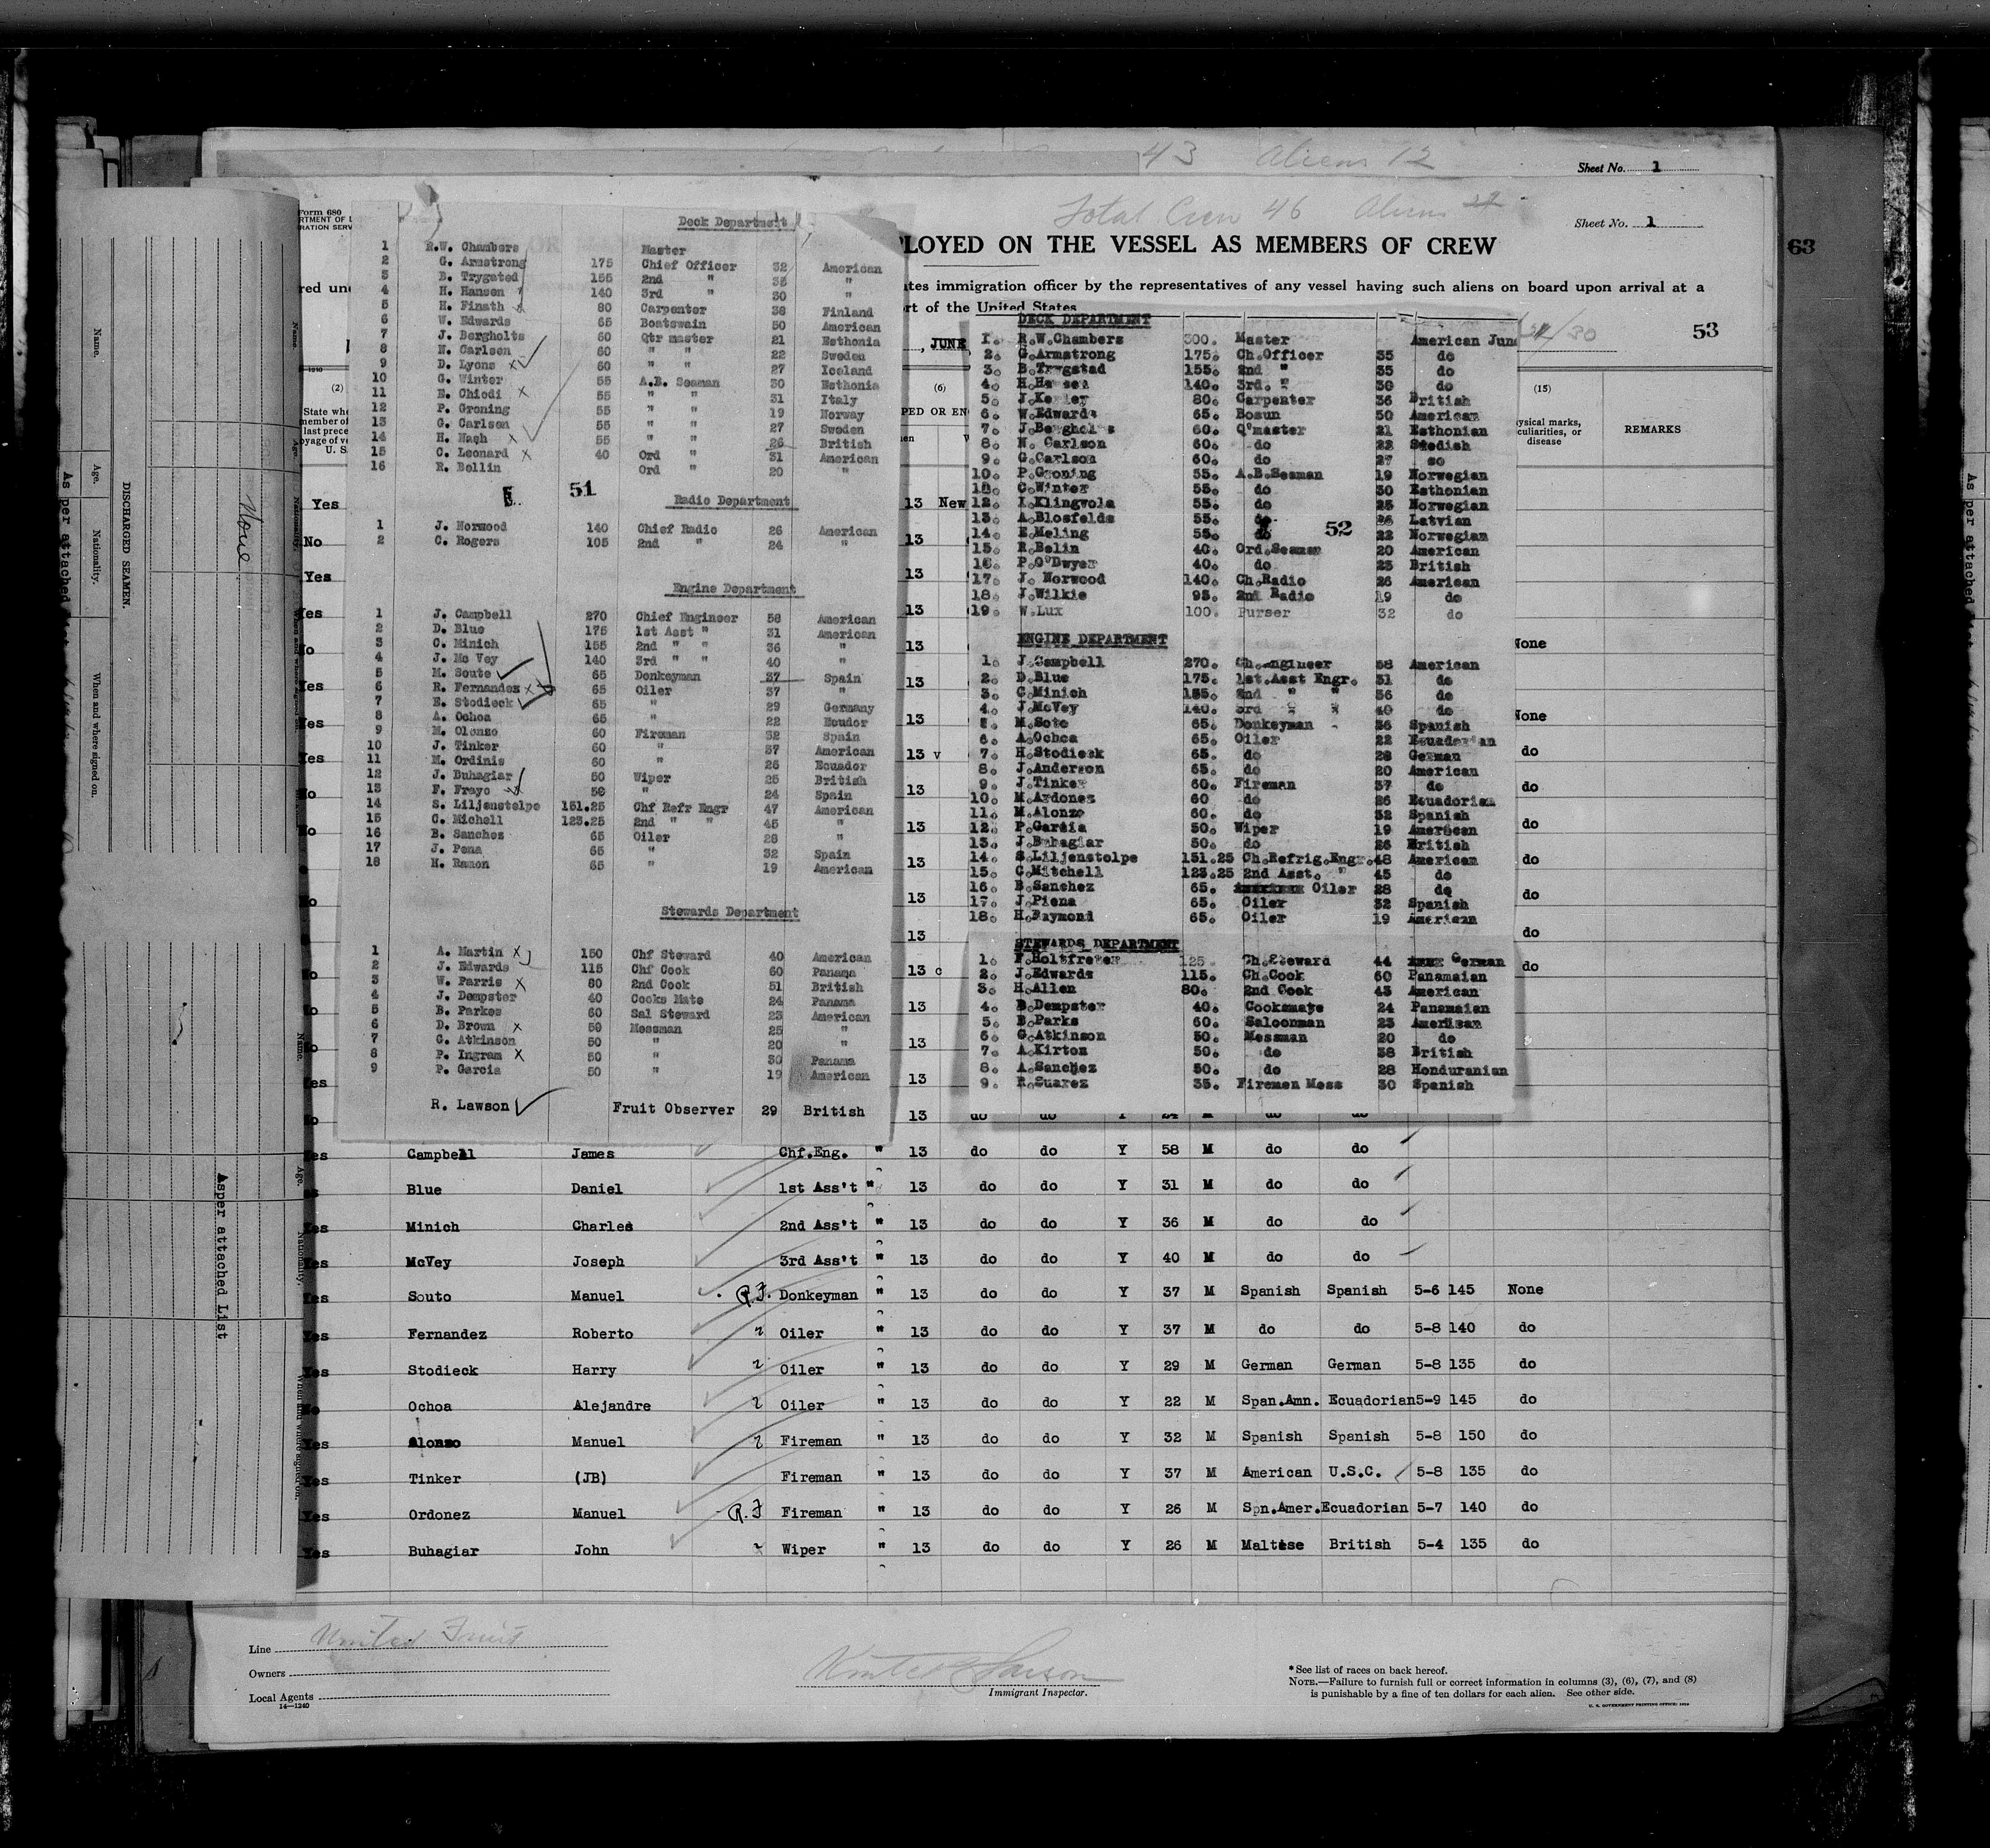 43 Aliens 12
Sheet No. 1
Total Crew 46 Aliens
Sheet No. 1
Form 680
LOYED ON THE VESSEL AS MEMBERS OF CREW
63
red und
tes immigration officer by the representatives of any vessel having such aliens on board upon arrival at a
rt of the United States
53
, JUNE
(2)
(6)
(15)
State whe
member of
last prece
oyage of ve
U. S.
PED OR EN
ysical marks,
culiarities, or
disease
REMARKS
Deck Department
1 R.W. Chambers Master
2 G. Armstrong 175 Chief Officer 32 American
3 B. Trygsted 155 2nd " 35 "
4 H. Hansen 140 3rd " 30 "
5 H. Finath 80 Carpenter 38 Finland
6 W. Edwards 65 Boatswain 50 American
7 J. Bergholts 60 Qtr master 21 Esthonia
8 N. Carlson 60 " " 22 Sweden
9 D. Lyons x 60 " " 27 Iceland
10 G. Winter 55 A.B. Seaman 30 Esthonia
11 E. Chiodi x 55 " " 31 Italy
12 P. Groning 55 " " 19 Norway
13 G. Carlson 55 " " 27 Sweden
14 H. Nash x 55 " " 26 British
15 C. Leonard x 40 Ord " 31 American
16 R. Bellin Ord " 20 "
51
Radio Department
1 J. Norwood 140 Chief Radio 26 American
2 C. Rogers 105 2nd " 24 "
Engine Department
1 J. Campbell 270 Chief Engineer 58 American
2 D. Blue 175 1st Asst " 31 American
3 C. Minich 155 2nd " " 36 "
4 J. Mc Vey 140 3rd " " 40 "
5 M. Souto 65 Donkeyman 37 Spain
6 R. Fernandez x 65 Oiler 37 "
7 E. Stodieck 65 " 29 Germany
8 A. Ochoa 65 " 22 Ecudor
9 M. Olonzo 60 Fireman 32 Spain
10 J. Tinker 60 " 37 American
11 M. Ordinis 60 " 26 Ecuador
12 J. Buhagiar 50 Wiper 25 British
13 F. Frayo 50 " 24 Spain
14 S. Liljenstolpe 151.25 Chf Refr Engr 47 American
15 C. Michell 123.25 2nd " " 45 "
16 B. Sanchez 65 Oiler 28 "
17 J. Pena 65 " 32 Spain
18 H. Ramon 65 " 19 American
Stewards Department
1 A. Martin x 150 Chf Steward 40 American
2 J. Edwards 115 Chf Cook 60 Panama
3 W. Parris x 80 2nd Cook 51 British
4 J. Dempster 40 Cooks Mate 24 Panama
5 B. Parkes 60 Sal Steward 23 American
6 D. Brown x 50 Messman 25 "
7 C. Atkinson 50 " 20 "
8 P. Ingram x 50 " 30 Panama
9 P. Garcia 50 " 19 American
R. Lawson Fruit Observer 29 British
DECK DEPARTMENT
1. R.W.Chambers 300. Master American June
2. G.Armstrong 175. Ch.Officer 35 do
3. B.Trygstad 155. 2nd " 35 do
4. H.Hansen 140. 3rd. " 30 do
5. J.Kexley 80. Carpenter 36 British
6. W.Edwards 65. Bosun 50 American
7. J.Bergholts 60. Q'master 21 Esthonian
8. N. Carlson 60. do 22 Swedish
9. G.Carlson 60. do 27 so
10. P.Groning 55. A.B.Seaman 19 Norwegian
11. C.Winter 55. do 30 Esthonian
12. I.Klingvola 55. do 25 Norwegian
13. A.Blosfelds 55. do 26 Latvian
52
14. E.Meling 55. do 22 Norwegian
15. R.Belin 40. Ord.Seaman 20 American
16. P.O'Dwyer 40. do 23 British
17. J. Norwood 140. Ch.Radio 26 American
18. J.Wilkie 95. 2nd Radio 19 do
19. W.Lux 100. Purser 32 do
ENGINE DEPARTMENT
1. J.Campbell 270. Ch.Engineer 58 American
2. D.Blue 175. 1st.Asst Engr. 31 do
3. C.Minich 155. 2nd " " 36 do
4. J.McVey 140. 3rd " " 40 do
5. M.Soto 65. Donkeyman 36 Spanish
6. A.Ochoa 65. Oiler 22 Ecuadorian
7. H.Stodieck 65. do 28 German
8. J.Anderson 65. do 20 American
9. J.Tinker 60. Fireman 37 do
10. M.Ardones 60 do 26 Ecuadorian
11. M.Alonzo 60. do 32 Spanish
12. P.Garcia 50. Wiper 19 American
13. J.Buhagiar 50. do 26 British
14. S.Liljenstolpe 151.25 Ch.Refrig.Engr.48 American
15. C.Mitchell 123.25 2nd Asst. " 45 do
16. B.Sanchez 65. Oiler 28 do
17. J.Piena 65. Oiler 32 Spanish
18. H.Raymond 65. Oiler 19 American
STEWARDS DEPARTMENT
1. F.Holtfreter 125. Ch.Steward 44 German
2. J.Edwards 115. Ch.Cook 60 Panamaian
3. H.Allen 80. 2nd Cook 43 American
4. B.Dempster 40. Cooksmate 24 Panamaian
5. B.Parks 60. Saloonman 23 American
6. G.Atkinson 50. Messman 20 do
7. A.Kirton 50. do 38 British
8. A.Sanchez 50. do 28 Honduranian
9. R.Suarez 35. Firemen Mess 30 Spanish
Yes Campbell James Chf.Eng. " 13 do do Y 58 M do do
Blue Daniel 1st Ass't " 13 do do Y 31 M do do
Yes Minich Charles 2nd Ass't " 13 do do Y 36 M do do
Yes McVey Joseph 3rd Ass't " 13 do do Y 40 M do do
Yes Souto Manuel R.F. Donkeyman " 13 do do Y 37 M Spanish Spanish 5-6 145 None
Yes Fernandez Roberto Oiler " 13 do do Y 37 M do do 5-8 140 do
Yes Stodieck Harry Oiler " 13 do do Y 29 M German German 5-8 135 do
No Ochoa Alejandre Oiler " 13 do do Y 22 M Span.Amn. Ecuadorian 5-9 145 do
Yes Alonso Manuel Fireman " 13 do do Y 32 M Spanish Spanish 5-8 150 do
Yes Tinker (JB) Fireman " 13 do do Y 37 M American U.S.C. 5-8 135 do
Yes Ordonez Manuel R.F Fireman " 13 do do Y 26 M Spn.Amer. Ecuadorian 5-7 140 do
Yes Buhagiar John Wiper " 13 do do Y 26 M Maltese British 5-4 135 do
Line United Fruit
Owners
Local Agents
14-1240
Immigrant Inspector.
*See list of races on back hereof.
NOTE.—Failure to furnish full or correct information in columns (3), (6), (7), and (8)
is punishable by a fine of ten dollars for each alien. See other side.
Name. Age. Nationality. When and where signed on.
DISCHARGED SEAMEN.
As per attached
None
Asper attached List